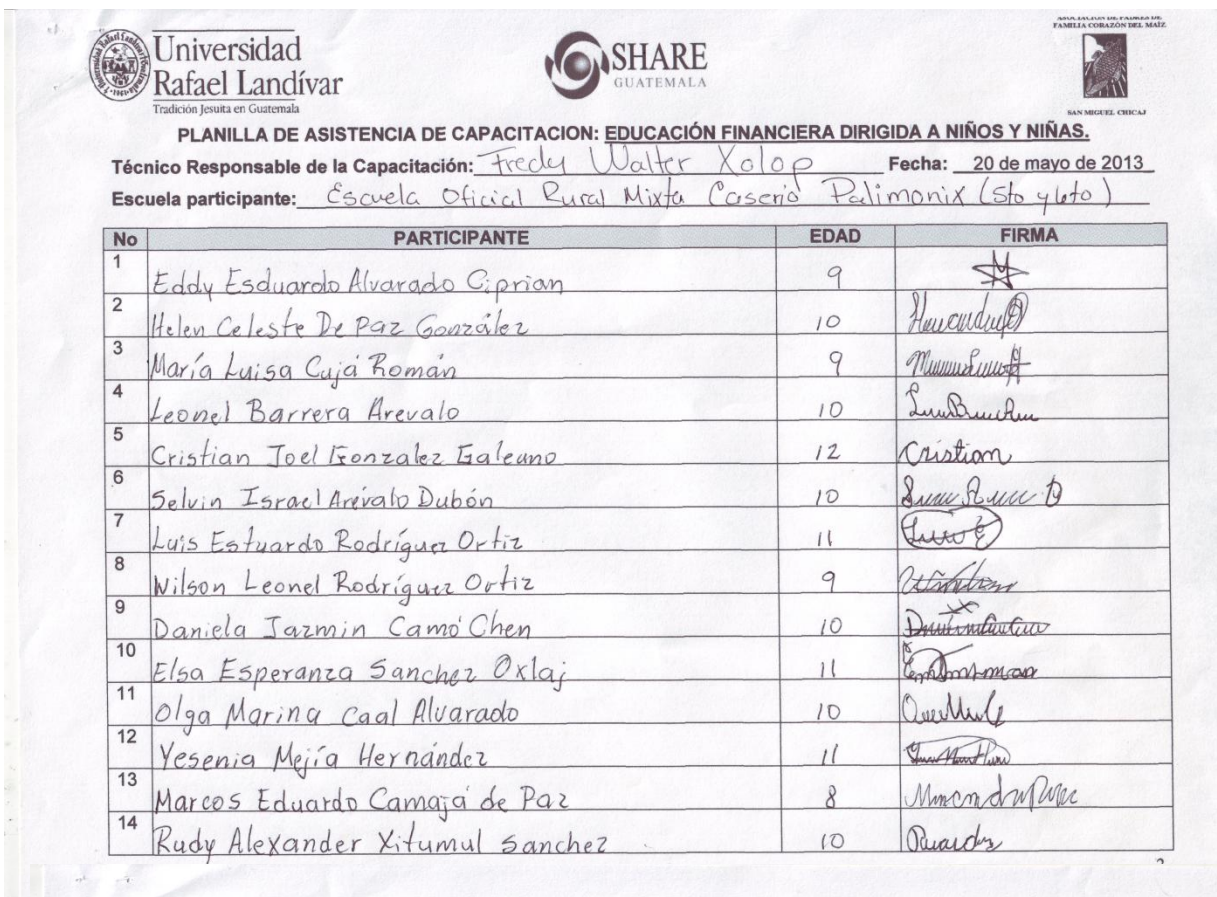 ASOCIACIÓN DE PADRES DE
FAMILIA CORAZÓN DEL MAÍZ
Universidad
Rafael Landívar
Tradición Jesuita en Guatemala
SHARE
GUATEMALA
SAN MIGUEL CHICAJ
PLANILLA DE ASISTENCIA DE CAPACITACION: EDUCACIÓN FINANCIERA DIRIGIDA A NIÑOS Y NIÑAS.
Técnico Responsable de la Capacitación: Fredy Walter Xolop Fecha: 20 de mayo de 2013
Escuela participante: Escuela Oficial Rural Mixta Caserio Palimonix (5to y 6to)
No PARTICIPANTE EDAD FIRMA
1 Eddy Esduardo Alvarado Ciprian 9
2 Helen Celeste De Paz González 10
3 María Luisa Cujá Román 9
4 Leonel Barrera Arevalo 10
5 Cristian Joel Gonzalez Galeano 12 Cristian
6 Selvin Israel Arévalo Dubón 10
7 Luis Estuardo Rodríguez Ortiz 11
8 Wilson Leonel Rodríguez Ortiz 9
9 Daniela Jazmin Camó Chen 10
10 Elsa Esperanza Sanchez Oxlaj 11
11 Olga Marina Caal Alvarado 10
12 Yesenia Mejía Hernández 11
13 Marcos Eduardo Camajá de Paz 8
14 Rudy Alexander Xitumul Sanchez 10